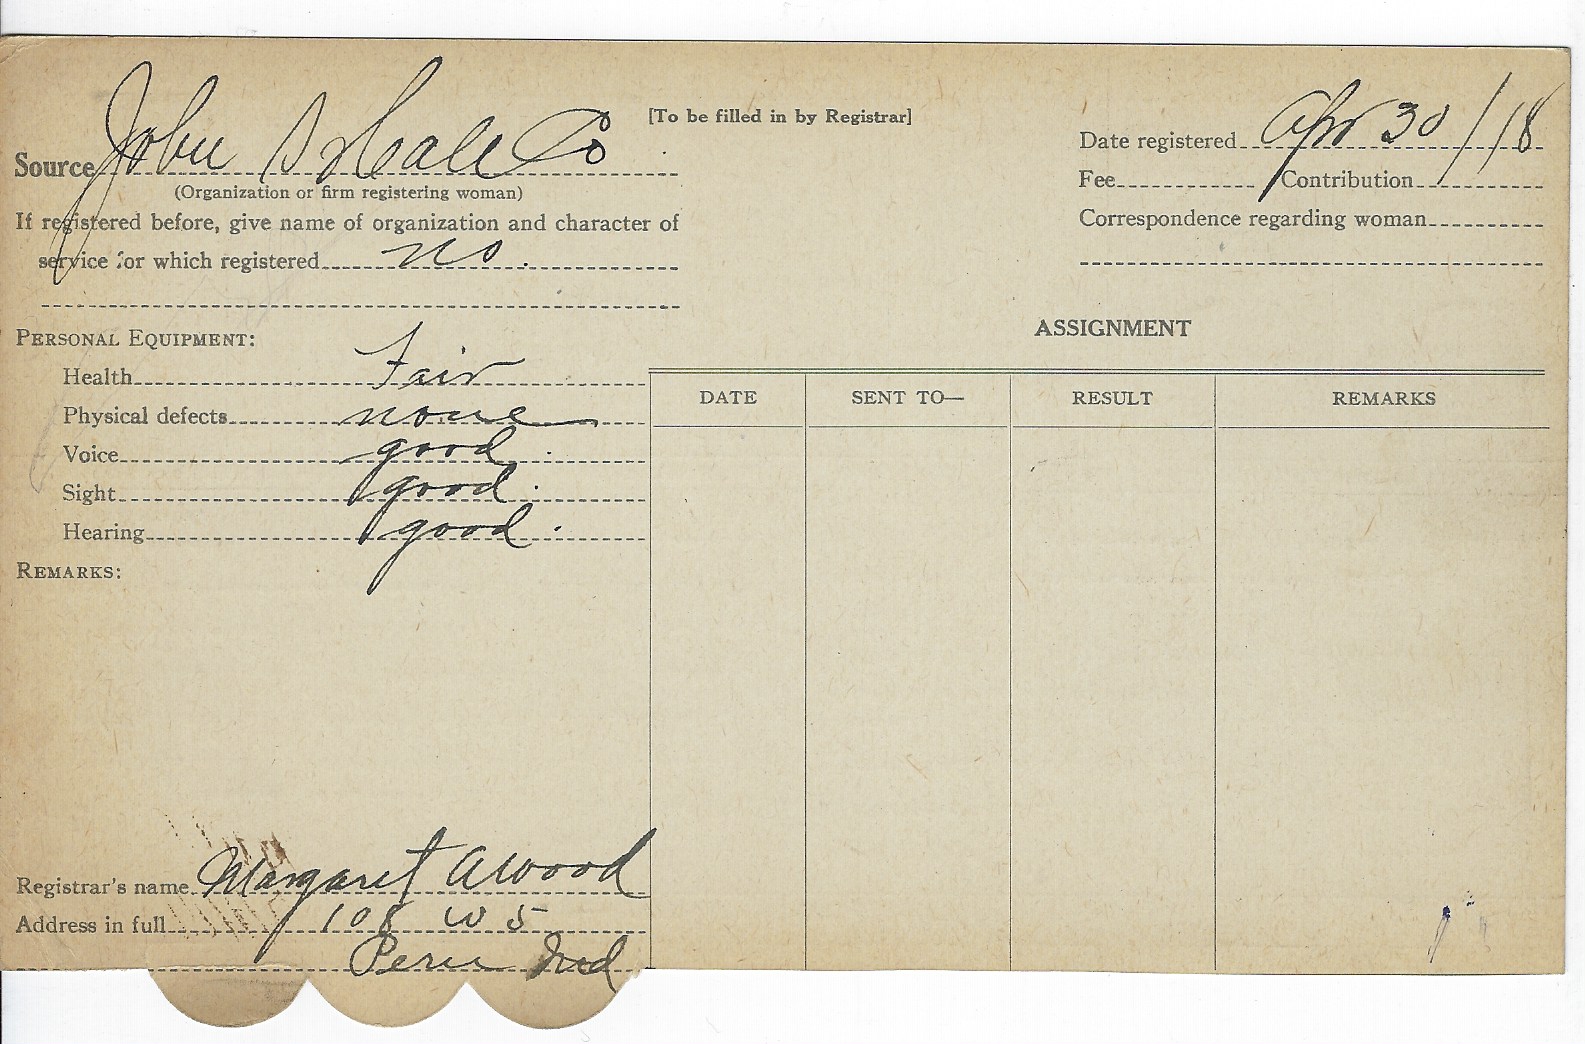 [To be filled in by Registrar]
Source John S Hale Co
(Organization or firm registering woman)
If registered before, give name of organization and character of
service for which registered no.
Date registered Apr 30/18
Fee Contribution
Correspondence regarding woman
PERSONAL EQUIPMENT:
Health Fair
Physical defects none
Voice good.
Sight good.
Hearing good.
REMARKS:
Registrar's name Margaret Awood
Address in full 108 W 5
Peru Ind
ASSIGNMENT
DATE SENT TO— RESULT REMARKS